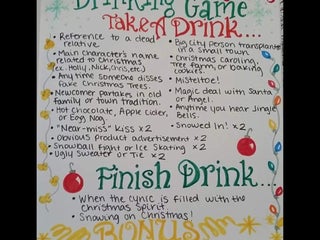 Drinking Game
Take A Drink...
• Reference to a dead
relative.
• Main Character's name
related to Christmas
ex. Holly, Nick, Cris, etc)
• Anytime someone disses
Fake Christmas Trees.
• Newcomer partakes in old
family or town tradition.
• Hot Chocolate, Apple Cider,
or Egg Nog
• "Near-miss" Kiss x2
• Obvious Product advertisement x2
• Snowball Fight or Ice Skating x2
• Ugly Sweater or Tie x2
• Big City person transplanted
in a small town.
• Christmas Caroling,
Tree farm or baking
cookies.
• Mistletoe!
• Magic deal with Santa
or Angel.
• Anytime you hear Jingle
Bells.
• Snowed In! x2
Finish Drink...
• When the cynic is filled with the
Christmas Spirit
• Snowing on Christmas!
BONUS